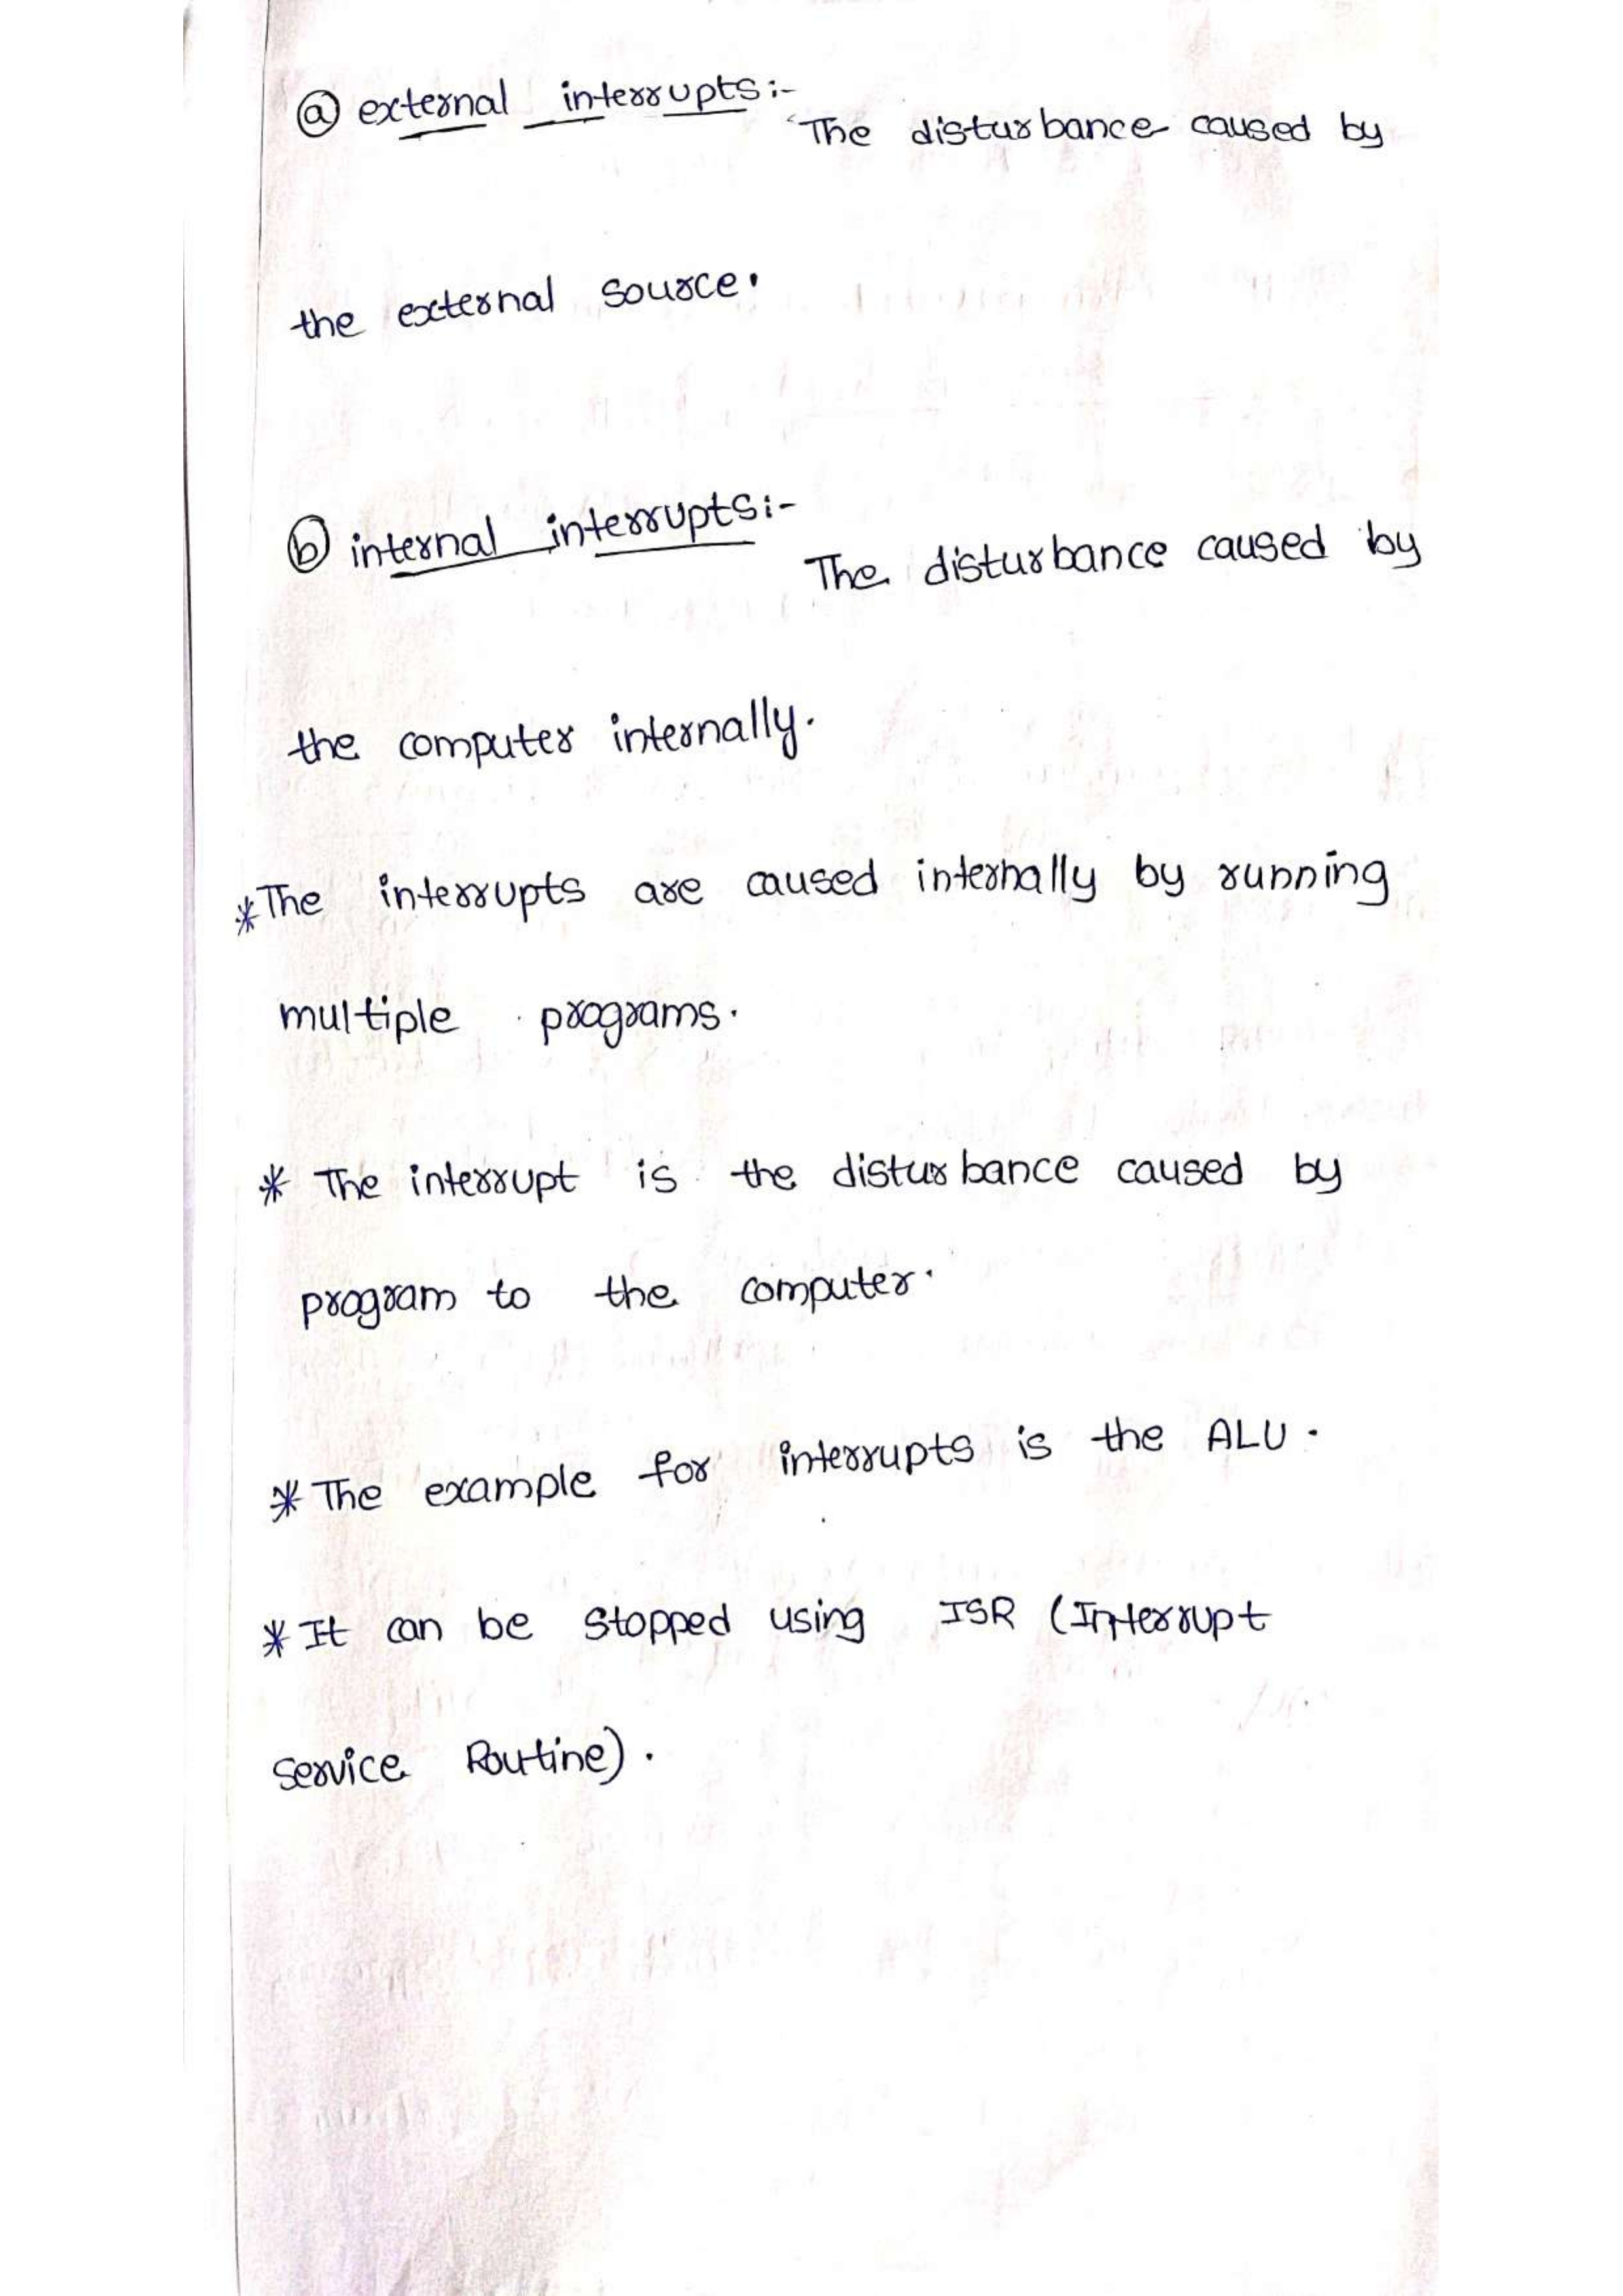 ⓐ external interrupts:-
The disturbance caused by
the external source.
ⓑ internal interrupts:-
The disturbance caused by
the computer internally.
*The interrupts are caused internally by running
multiple programs.
* The interrupt is the disturbance caused by
program to the computer.
* The example for interrupts is the ALU.
* It can be stopped using ISR (Interrupt
service Routine).